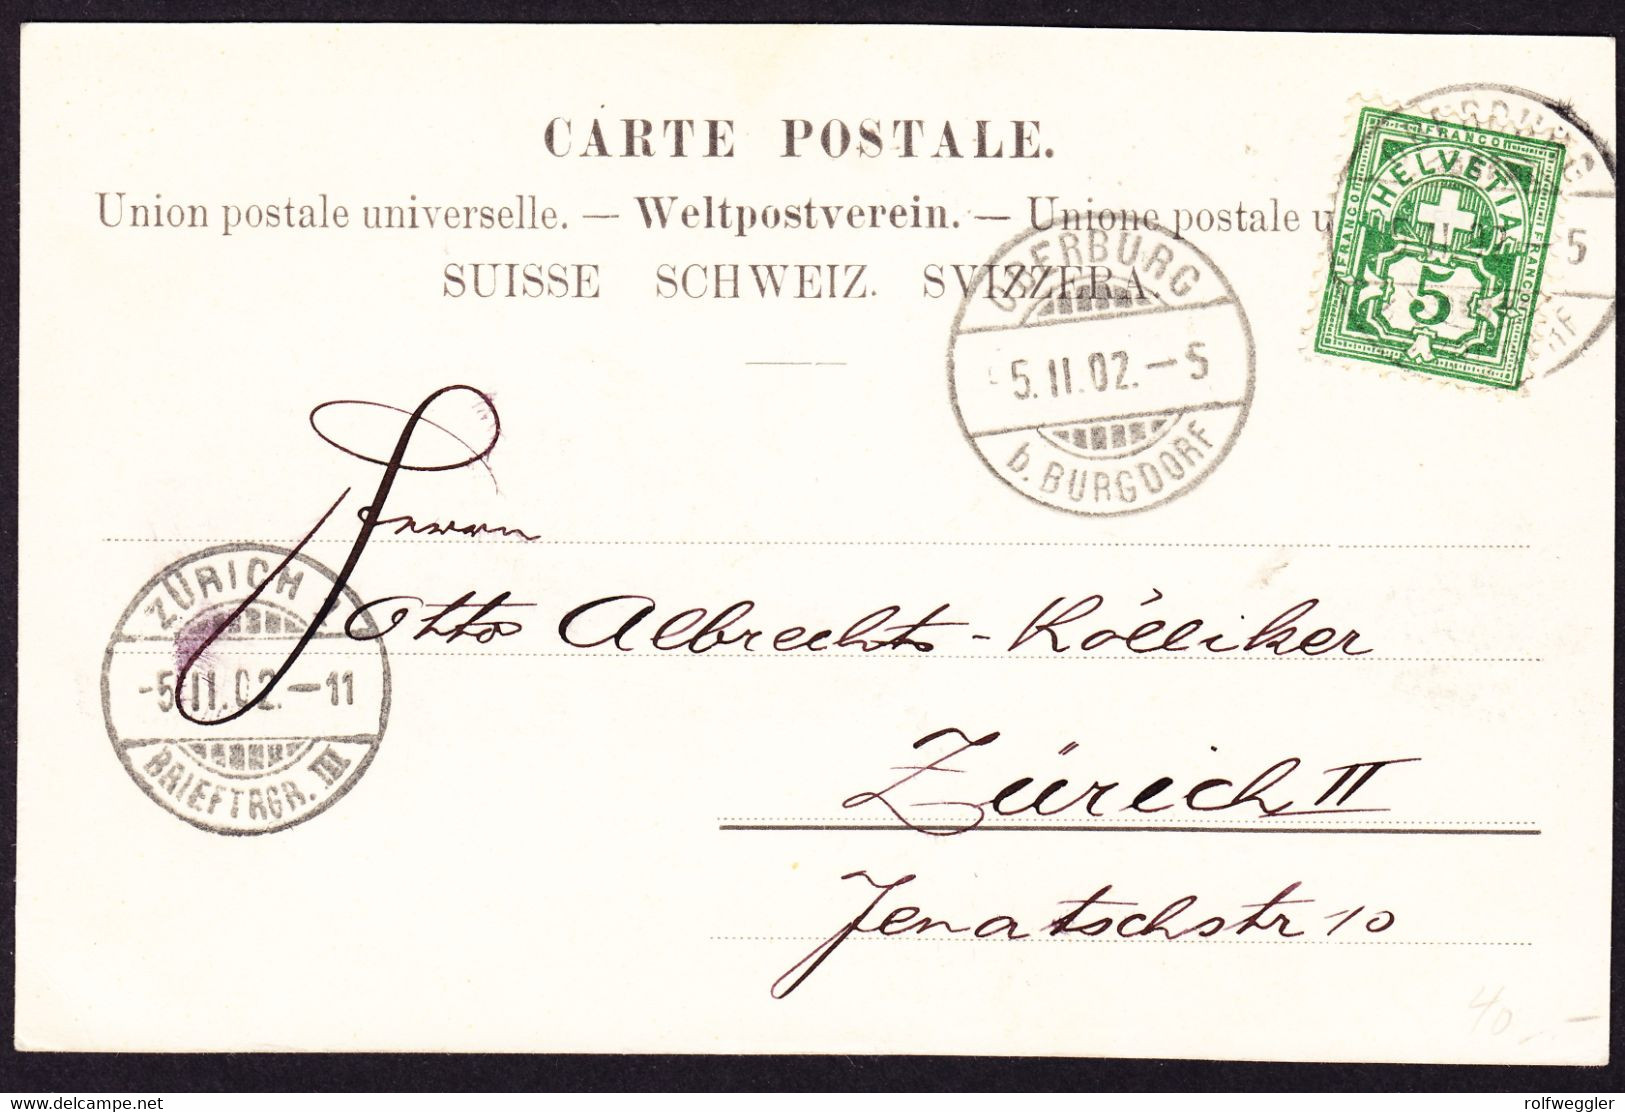 CARTE POSTALE.
Union postale universelle. — Weltpostverein. — Unione postale u
SUISSE SCHWEIZ. SVIZZERA.
FRANCO
FRANCO HELVETIA FRANCO
5
OBERBURG
-5.II.02.-5
b. BURGDORF
Herrn
Otto Albrecht-Kölliker
Zürich II
Jenatschstr 10
ZÜRICH 2
-5.II.02.-11
BRIEFTRGR. III
40.-
delcampe.net
rolfweggler